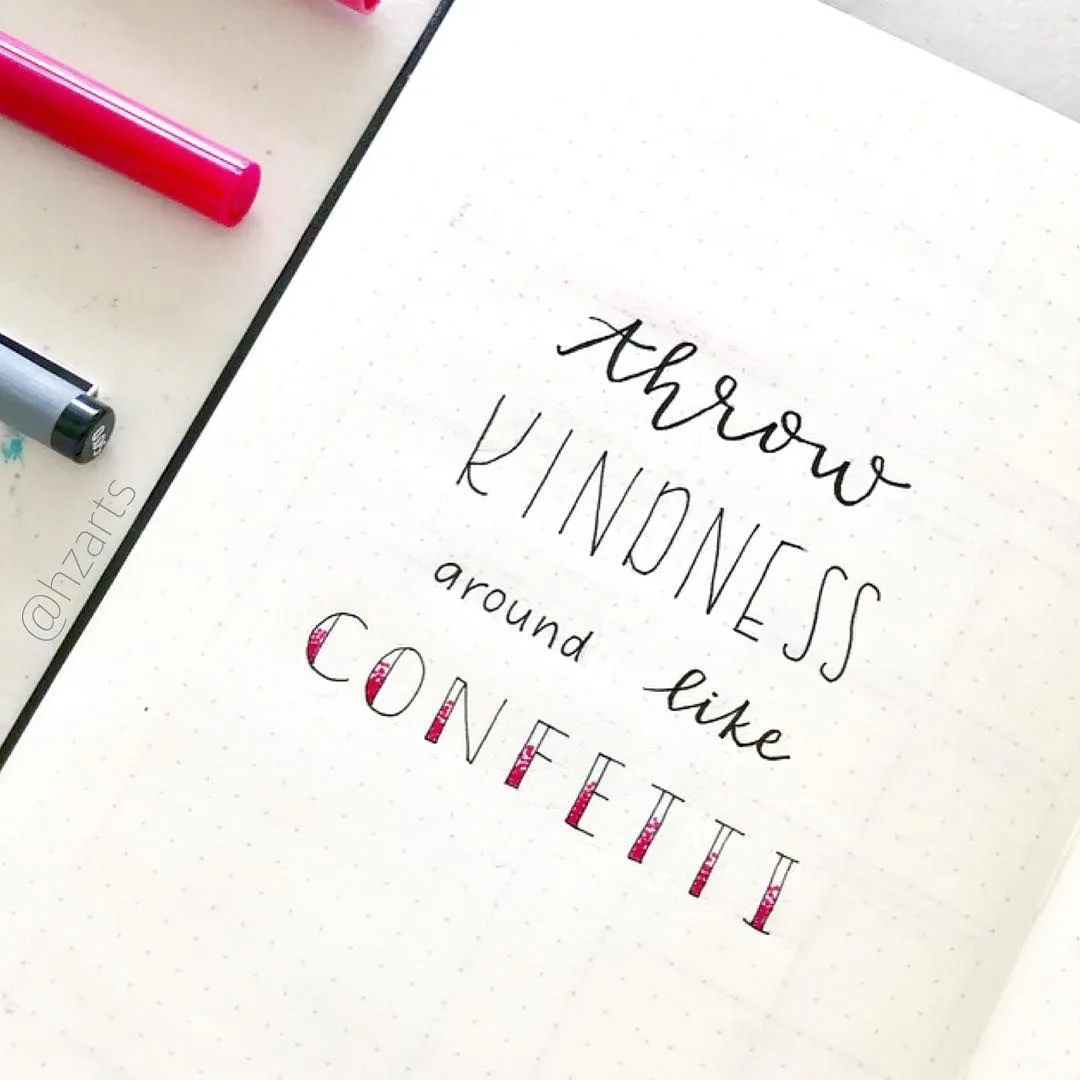 throw
KINDNESS
around like
CONFETTI
@hzarts